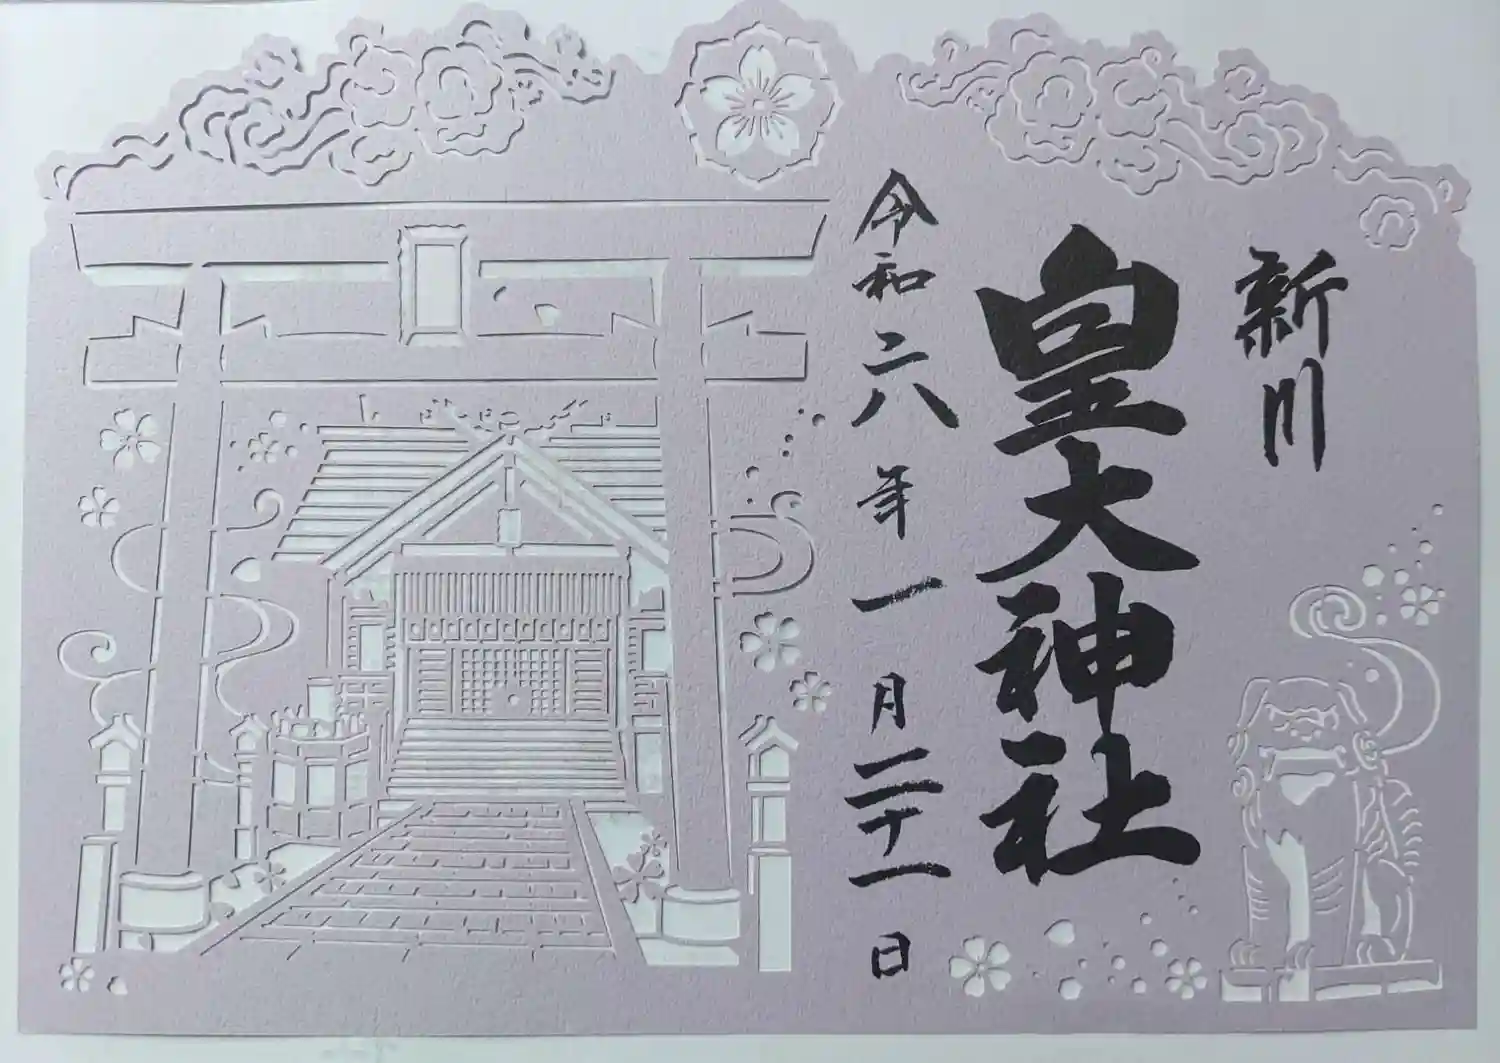 新川
皇大神社
令和二八年一月二十一日